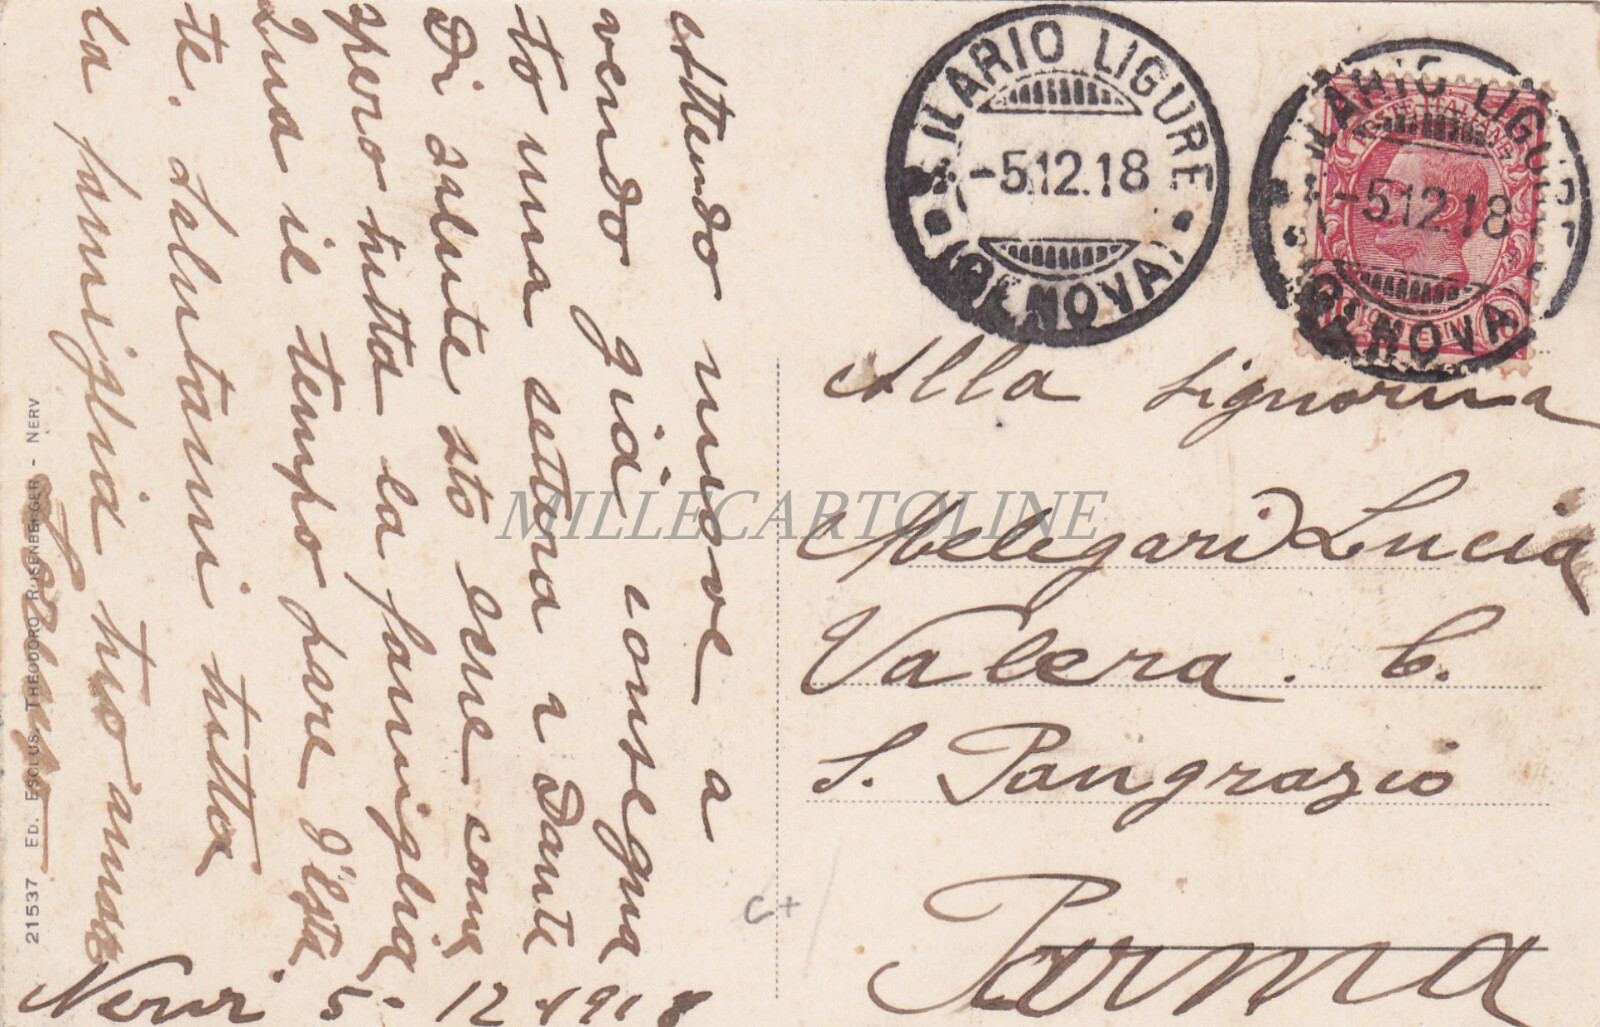 Nervi 5-12-1918
Attendo nuove a
vendo già consegna
to una lettera a Dante
Di salute sto bene come
spero tutta la famiglia
Qua il tempo pare d'Esta
te. Salutami tutta
la famiglia tuo
S. ILARIO LIGURE
-5.12.18
(GENOVA)
S. ILARIO LIGURE
-5.12.18
(GENOVA)
POSTE ITALIANE
Alla Signorina
Melegari Lucia
Valera. C.
S. Pangrazio
Parma
21537 ED. ESCLUS. THEODORO ROSENBERGER - NERVI
MILLECARTOLINE